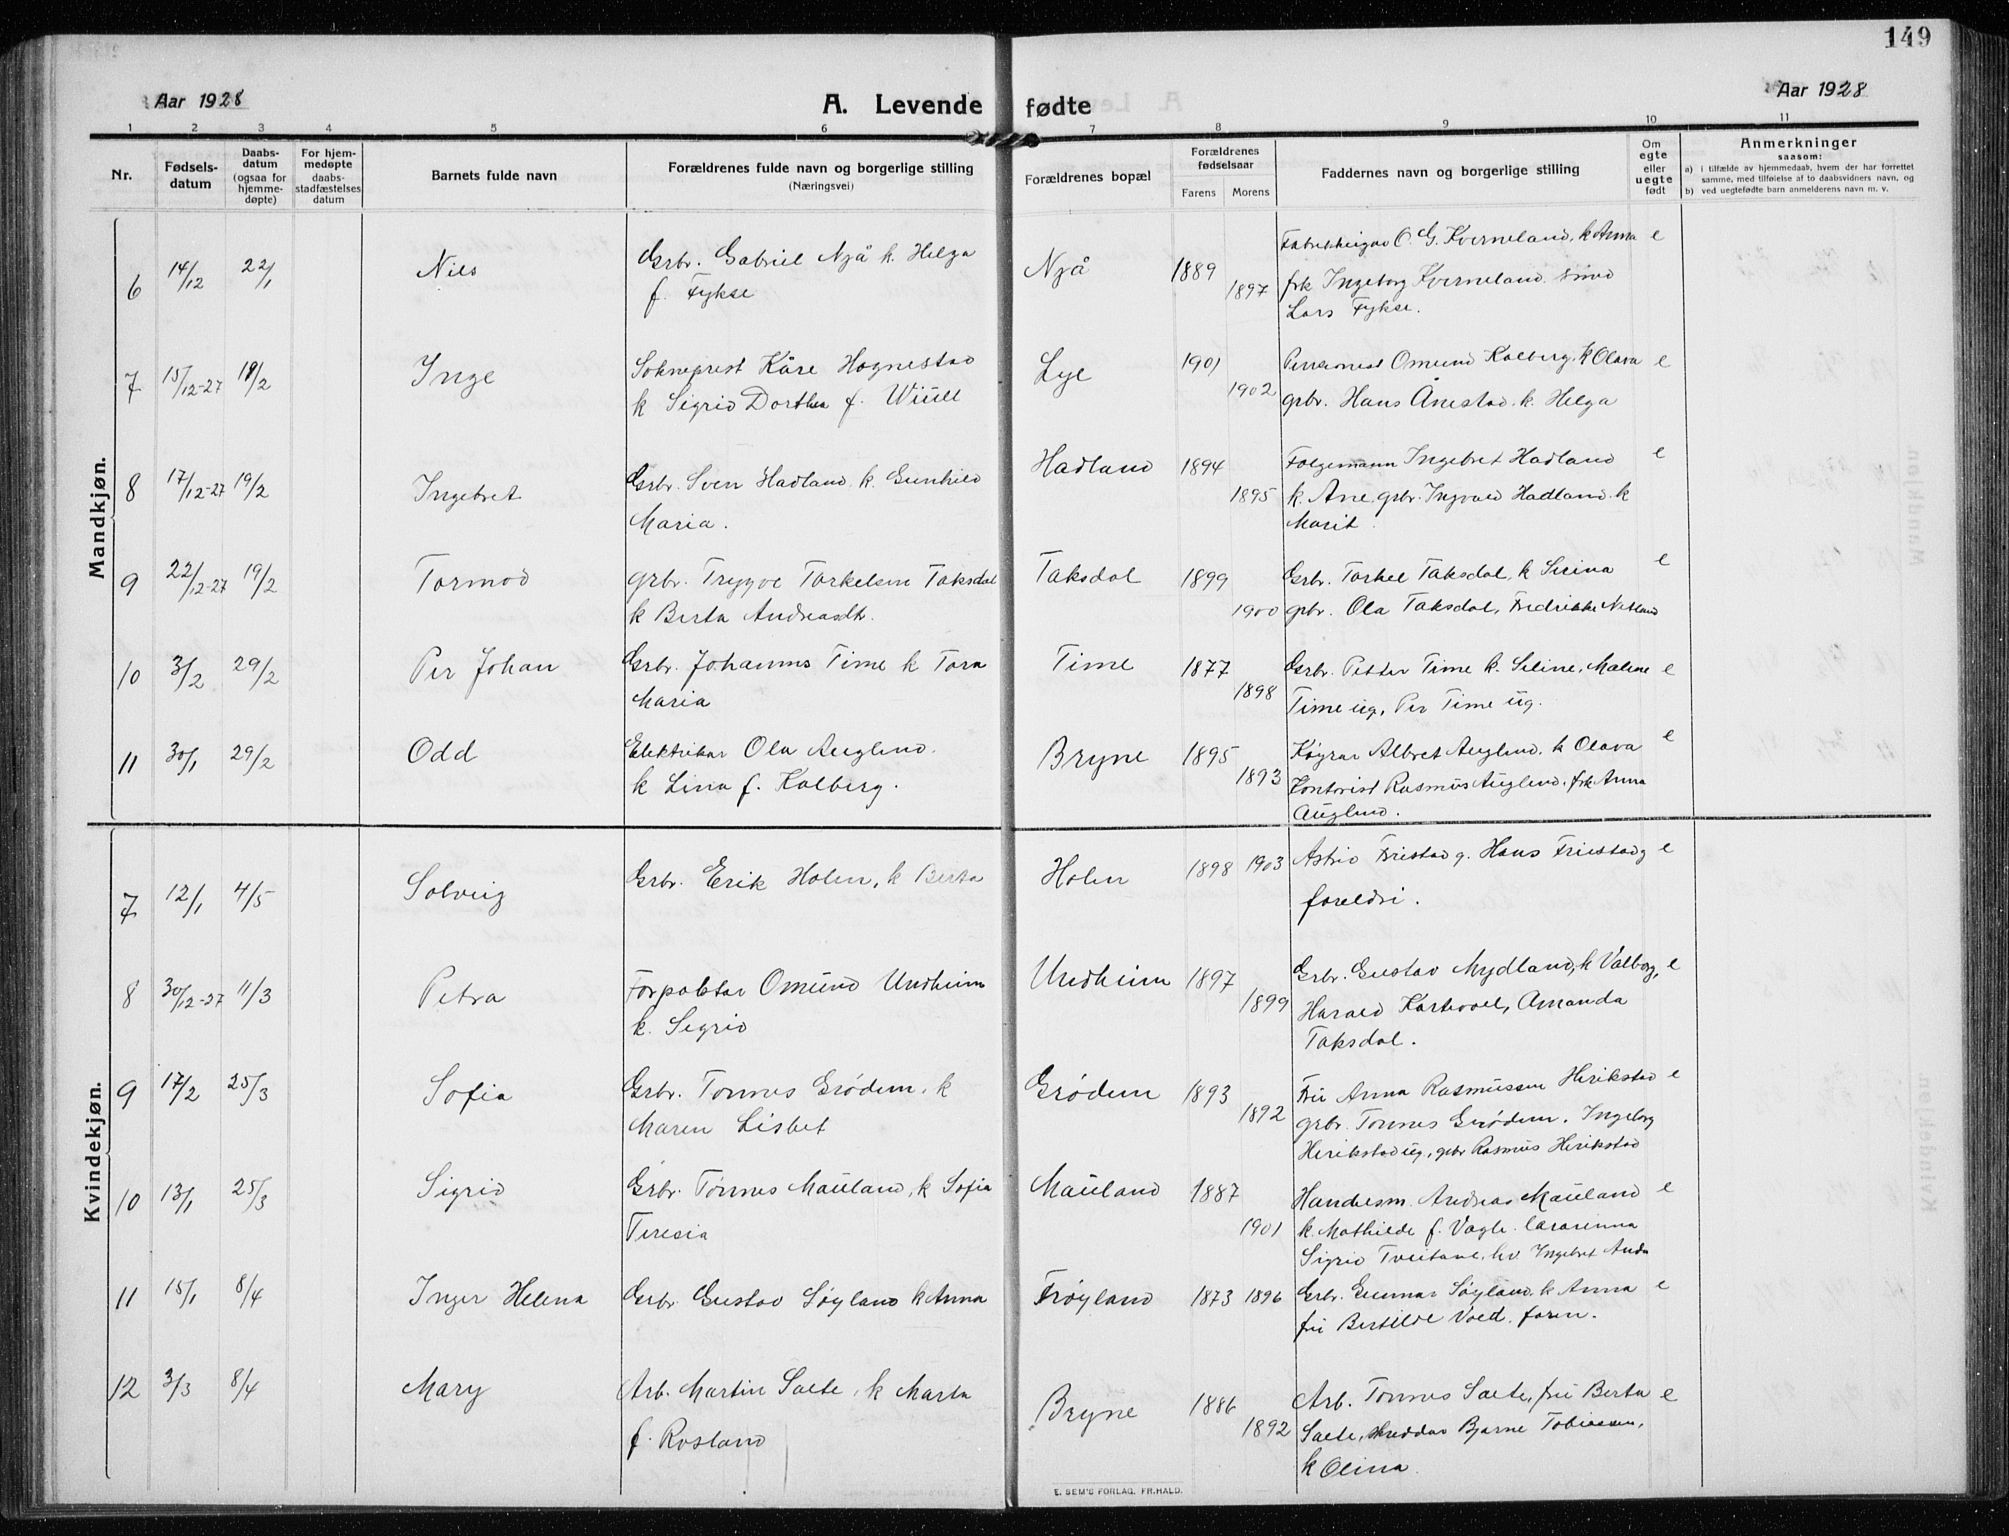 149
Aar 1928
A. Levende fødte
Aar 1928
1 2 3 4 5 6 7 8 9 10 11
Nr.
Fødsels-
datum
Daabs-
datum
(ogsaa for
hjemme-
døpte)
For hjem-
medøpte
daabs-
stadfæstelses
datum
Barnets fulde navn
Forældrenes fulde navn og borgerlige stilling
(Næringsvei)
Forældrenes bopæl
Forældrenes
fødselsaar
Farens Morens
Faddernes navn og borgerlige stilling
Om
egte
eller
uegte
født
Anmerkninger
saasom:
a) i tilfælde av hjemmedaab, hvem der har forrettet
samme, med tilføielse af to daabsvidners navn, og
b) ved uegtefødte barn anmelderens navn m. v.
Mandkjøn.
6 14/12 22/1 Nils Grbr. Gabriel Njå k. Helga
f. Fykse
Njå 1889 1897
O. G. Kverneland, k Anna e
frk Ingeborg Kverneland. smed
Lars Fykse.
7 15/12-27 19/2 Inge Sokneprest Kåre Hognestad
k Sigrid Dorthea f. Wiull
Lye 1901 1902
Pensionist Omund Kalberg, k Olava e
grbr. Hans Ånestad. k. Helga
8 17/12-27 19/2 Ingebret Grbr. Sven Hadland k. Gunhild
Maria.
Hadland 1894 1895
Folgemann Ingebret Hadland e
k. Ane, grbr. Ingvald Hadland k
Marit.
9 22/12-27 19/2 Tormod grbr. Trygve Torkelsen Taksdal
k Berta Andreasdtr.
Taksdal 1899 1900
Grbr. Torkel Taksdal, k Serina e
grbr. Ola Taksdal, Fredrikke Netland
10 3/2 29/2 Per Johan Grbr. Johannes Time k Tora
Maria
Time 1877 1898
Grbr. Petter Time k. Seline, Malene e
Time ug, Per Time ug.
11 30/1 29/2 Odd Elektrikar Ola Auglend.
k Lina f. Kalberg.
Bryne 1895 1893
Køyrar Albret Auglend. k Olava e
Kontorist Rasmus Auglend. frk Anna
Auglend.
Kvindekjøn.
7 12/1 4/5 Solveig Grbr. Erik Holen, k Berta
Holen 1898 1903
Astrid Friestad g. Hans Friestad g e
foreldri.
8 30/12-27 11/3 Petra Forpaktar Omund Undheim
k. Sigrid
Undheim 1897 1899
Grbr. Gustav Mydland, k Valborg, e
Harald Kartevoll, Amanda
Taksdal.
9 17/2 25/3 Sofia Grbr. Tønnes Grødem. k
Maren Lisbet
Grødem 1893 1892
Fru Anna Rasmussen Herikstad e
grbr. Tønnes Grødem. Ingeborg
Herikstad ug, grbr Rasmus Herikstad
10 13/1 25/3 Sigrid Grbr. Tønnes Mauland, k Sofia
Teresia
Mauland 1887 1901
Handelsm. Andreas Mauland e
k. Mathilde f. Vagle. lærarinna
Sigrid Tveitane, hv Ingebret Anda
11 15/1 8/4 Inger Helena Grbr. Gustav Søyland k Anna
Frøyland 1873 1896
Grbr. Gunnar Søyland. k Anna e
fru Bertilde Voll. faren.
12 3/3 8/4 Mary Arb. Martin Sæle, k Marta
f. Rosland
Bryne 1886 1892
Arb. Tønnes Sæle, fru Berta e
Sæle, skreddar Bjarne Tobiassen,
k Olina
E. SEM'S FORLAG, FR.HALD.